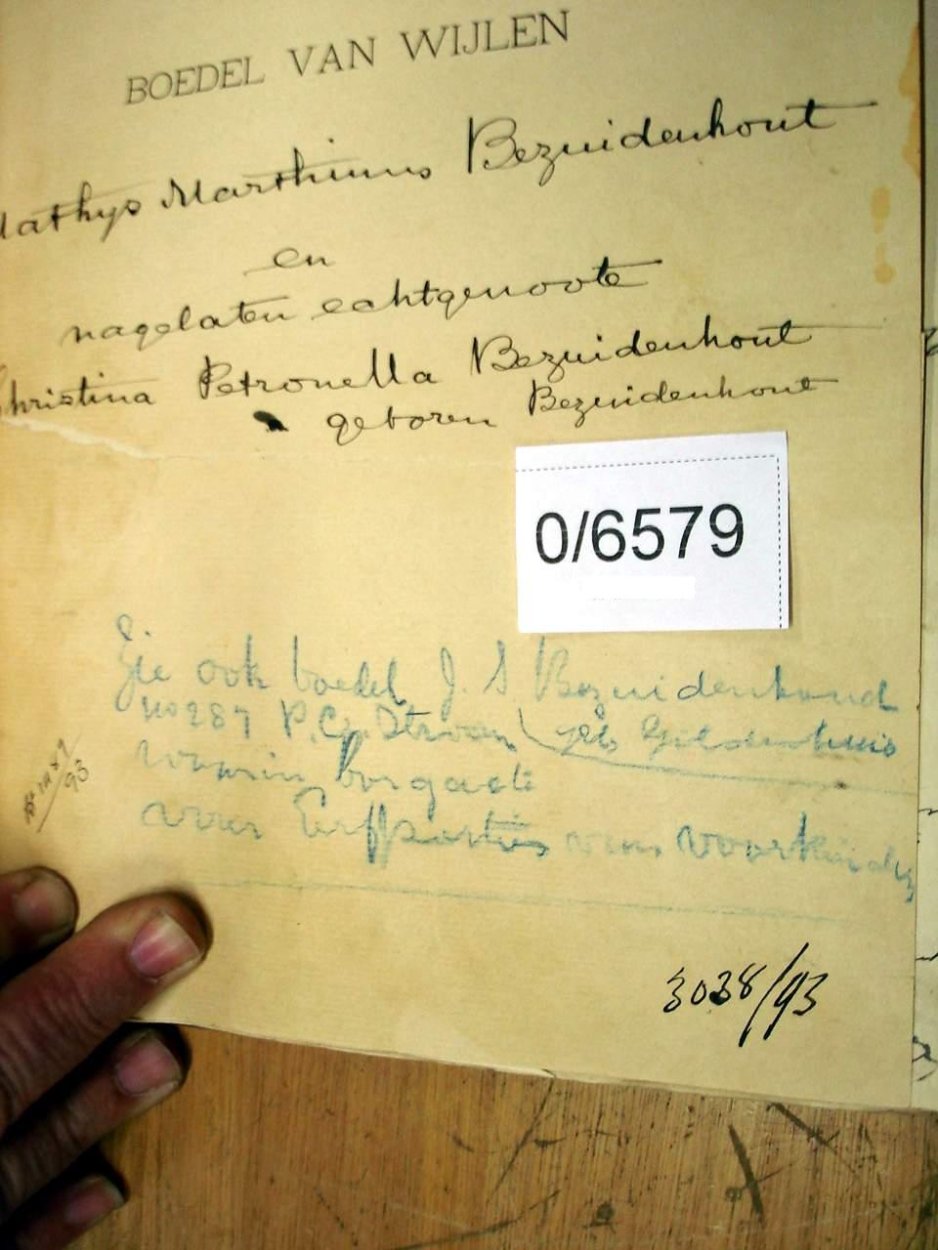 BOEDEL VAN WIJLEN
Mathys Marthinus Bezuidenhout
en
nagelaten echtgenoote
Christina Petronella Bezuidenhout
geboren Bezuidenhout
0/6579
Zie ook boedel J. S Bezuidenhoud
no 287 P.C. geb Gildenhuis
waarin
voor Erfporties van voorkinders
3038/93